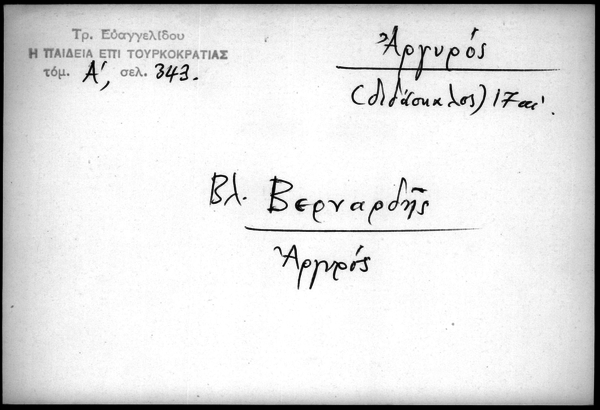 Τρ. Εὐαγγελίδου
Η ΠΑΙΔΕΙΑ ΕΠΙ ΤΟΥΡΚΟΚΡΑΤΙΑΣ
τόμ. Α', σελ. 343.
Ἀργυρός
(διδάσκαλος) 17 αι.
Βλ. Βερναρδῆς
Ἀργυρός